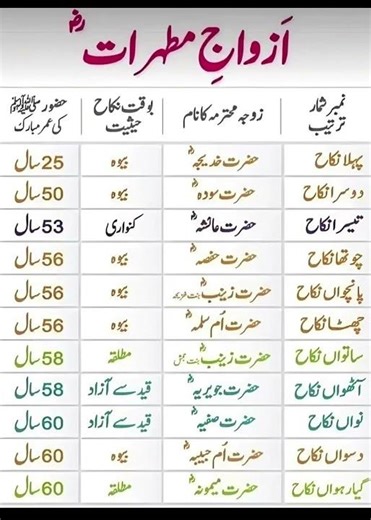 اَزواجِ مطہرات رضؓ
نمبر شمار ترتیب زوجہ محترمہ کا نام بوقت نکاح حیثیت حضور ﷺ کی عمر مبارک
پہلا نکاح حضرت خدیجہؓ بیوہ 25 سال
دوسرا نکاح حضرت سودہؓ بیوہ 50 سال
تیسرا نکاح حضرت عائشہؓ کنواری 53 سال
چوتھا نکاح حضرت حفصہؓ بیوہ 56 سال
پانچواں نکاح حضرت زینبؓ بنت خزیمہ بیوہ 56 سال
چھٹا نکاح حضرت اُم سلمہؓ بیوہ 56 سال
ساتواں نکاح حضرت زینبؓ بنت جحش مطلقہ 58 سال
آٹھواں نکاح حضرت جویریہؓ قید سے آزاد 58 سال
نواں نکاح حضرت صفیہؓ قید سے آزاد 60 سال
دسواں نکاح حضرت اُم حبیبہؓ بیوہ 60 سال
گیارہواں نکاح حضرت میمونہؓ مطلقہ 60 سال